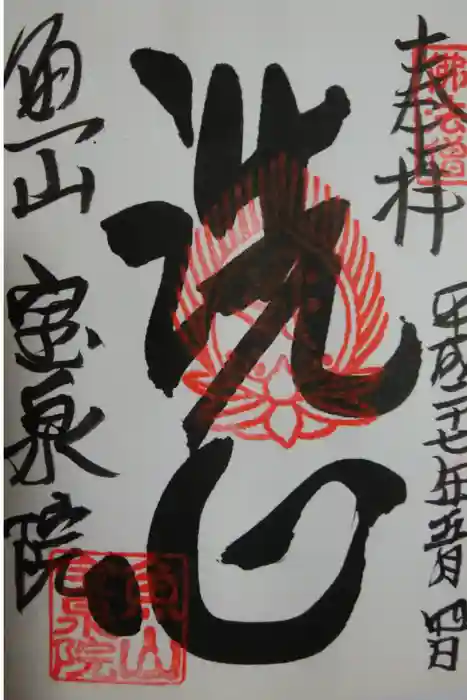 佛法僧
奉拝
平成二十七年五月四日
洗心
魚山 宝泉院
魚山
宝泉院